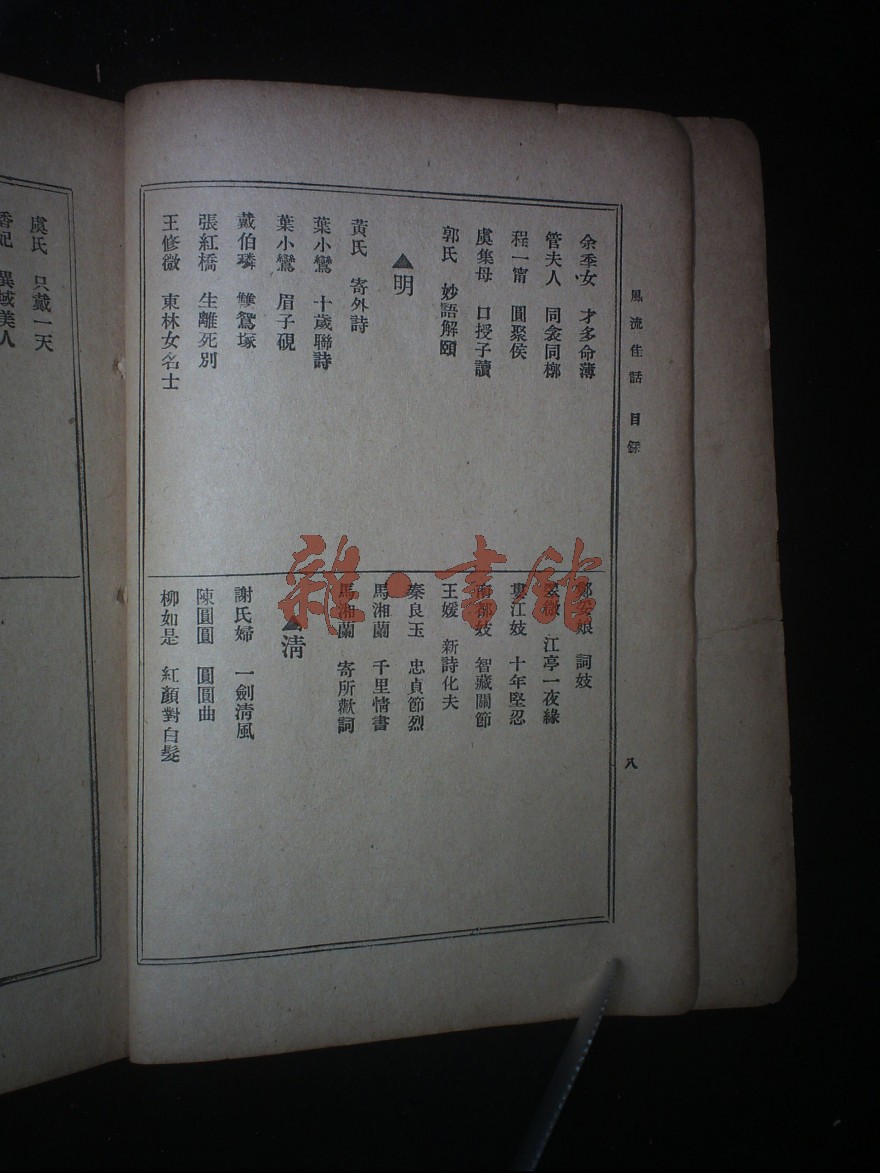 風流佳話 目錄
八
余季女 才多命薄
管夫人 同衾同槨
程一甯 圓聚侯
虞集母 口授子讀
郭氏 妙語解頤
▲明
黃氏 寄外詩
葉小鸞 十歲聯詩
葉小鸞 眉子硯
戴伯璘 雙鴛塚
張紅橋 生離死別
王修微 東林女名士
鄭安娘 詞妓
翠微 江亭一夜緣
婁江妓 十年堅忍
南都妓 智藏關節
王媛 新詩化夫
秦良玉 忠貞節烈
馬湘蘭 千里情書
馬湘蘭 寄所歡詞
▲清
謝氏婦 一劍清風
陳圓圓 圓圓曲
柳如是 紅顏對白髮
虞氏 只戴一天
香妃 異域美人
雜·書館